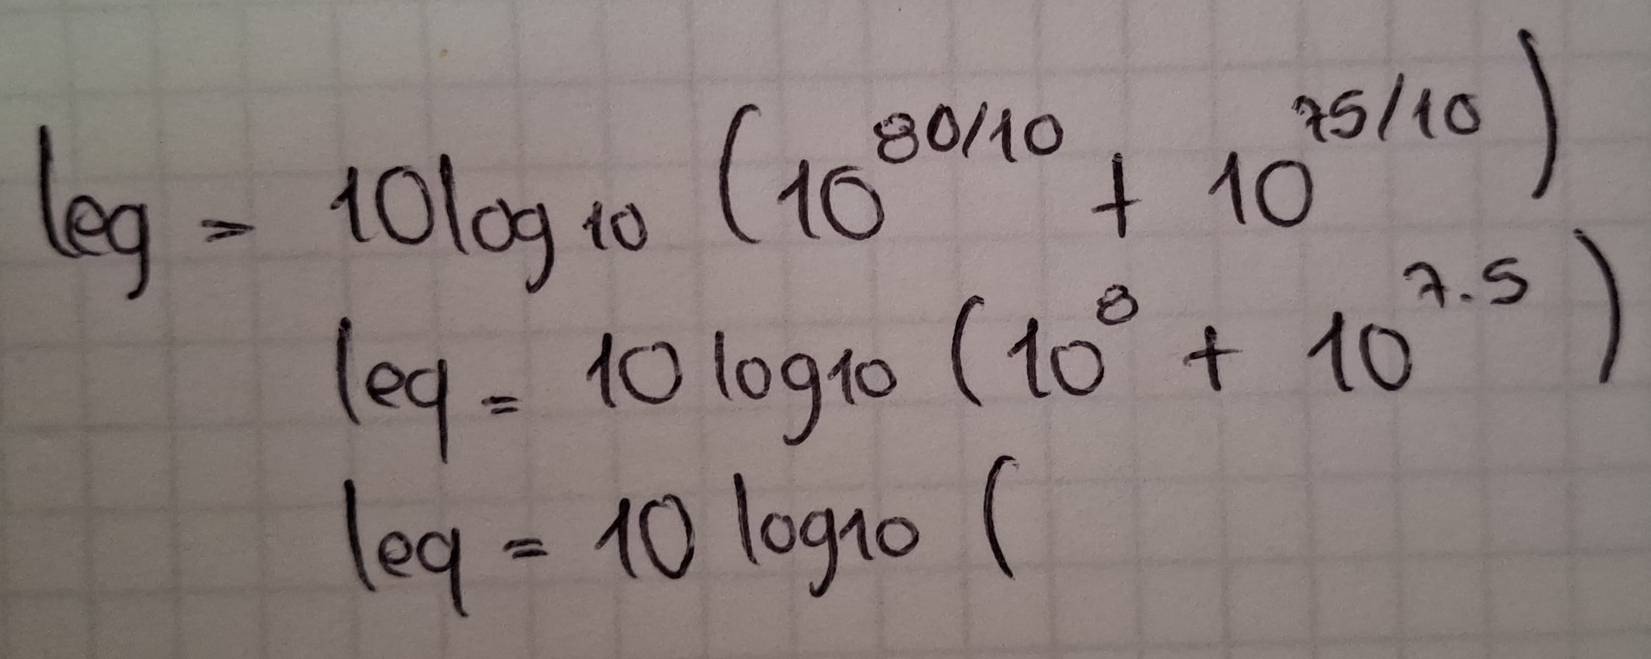 leq = 10log10 (10^80/10 + 10^75/10)
leq = 10 log10 (10^8 + 10^7.5)
leq = 10 log10 (